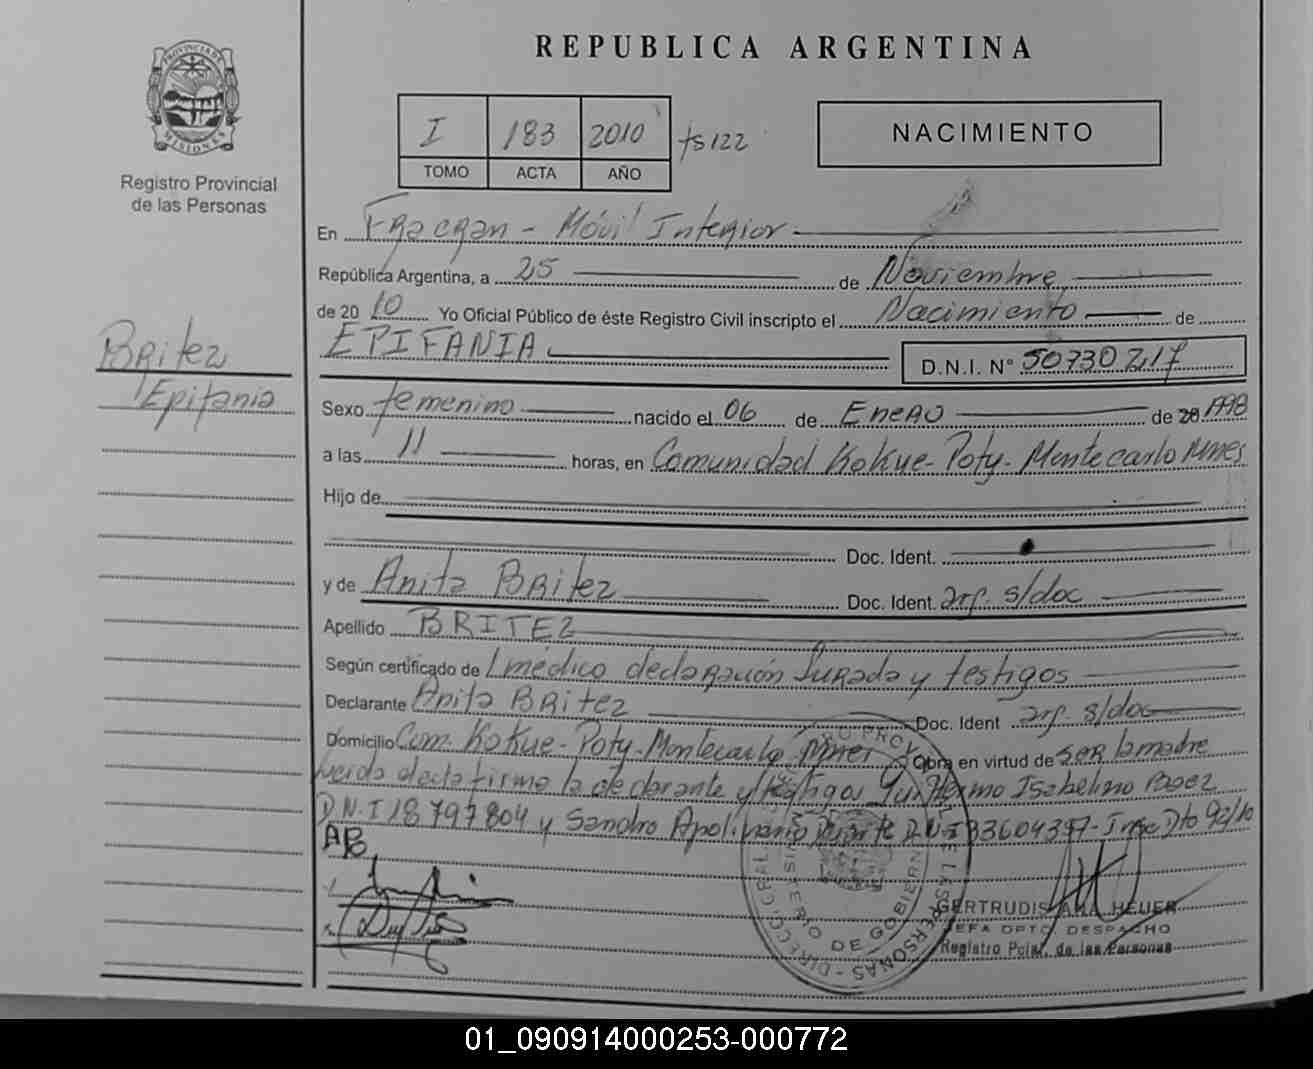 REPUBLICA ARGENTINA
PROVINCIA DE MISIONES
Registro Provincial
de las Personas
I 183 2010 fs 122
TOMO ACTA AÑO
NACIMIENTO
En Fracran - Móvil Interior
República Argentina, a 25 de Noviembre
de 2010 Yo Oficial Público de éste Registro Civil inscripto el Nacimiento de
EPIFANIA D.N.I. N° 50730217
Britez
Epifania
Sexo femenino nacido el 06 de Enero de 20 1998
a las 11 horas, en Comunidad Kokue-Poty-Montecarlo Mnes
Hijo de
Doc. Ident.
y de Anita Britez Doc. Ident. arg. s/doc
Apellido BRITEZ
Según certificado de l médico declaración Jurada y testigos
Declarante Anita Britez Doc. Ident arg. s/doc
Domicilio Com. Kokue-Poty-Montecarlo Mnes Obra en virtud de ser la madre
leida el acta firma la declarante y testigos Guillermo Isabelino Baez
D.N.I 18797804 y Sandro Apolinario Duarte D.N.I 33604397- Dto 92/10
AB
GERTRUDIS ANA HEUER
JEFA DPTO. DESPACHO
Registro Pcial. de las Personas
01_090914000253-000772